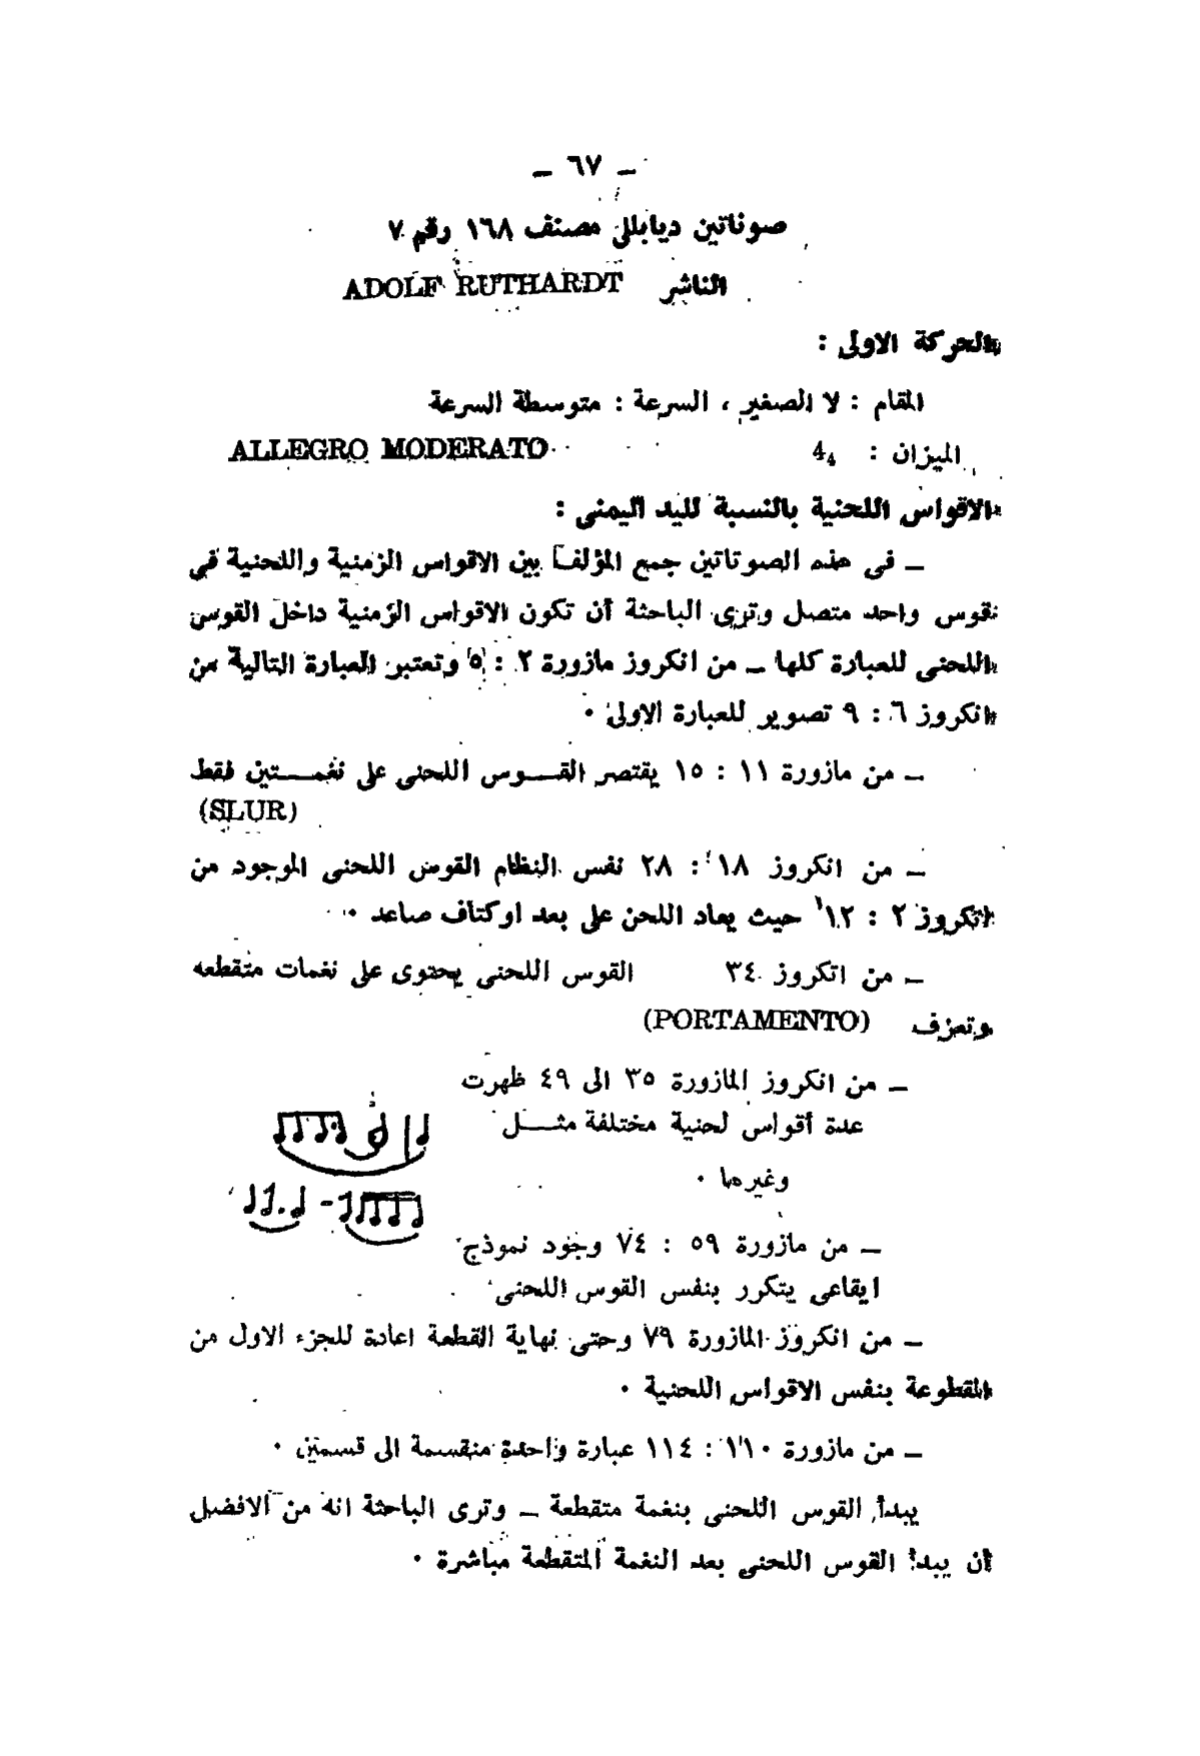 ـ ٦٧ ـ
صوناتين ديابللى مصنف ١٦٨ رقم ٧
الناشر ADOLF RUTHARDT
الحركة الاولى :
المقام : لا الصغير ، السرعة : متوسطة السرعة
الميزان : 4 4 ALLEGRO MODERATO
الاقواس اللحنية بالنسبة لليد اليمنى :
ـ فى هذه الصوتاتين جمع المؤلف بين الاقواس الزمنية واللحنية في
قوس واحد متصل وترى الباحثة أن تكون الاقواس الزمنية داخل القوس
اللحنى للعبارة كلها ـ من انكروز مازورة ٢ : ٥ وتعتبر العبارة التالية من
انكروز ٦ : ٩ تصوير للعبارة الاولى ٠
ـ من مازورة ١١ : ١٥ يقتصر القـــوس اللحنى على نغمـــتين فقط
(SLUR)
ـ من انكروز ١٨ : ٢٨ نفس النظام القوس اللحنى الموجود من
انكروز ٢ : ١٢ حيث يعاد اللحن على بعد اوكتاف صاعد ٠
ـ من اتكروز ٣٤ القوس اللحنى يحتوى على نغمات متقطعه
وتعزف (PORTAMENTO)
ـ من انكروز المازورة ٣٥ الى ٤٩ ظهرت
عدة أقواس لحنية مختلفة مثـــل
وغيرها ٠
ـ من مازورة ٥٩ : ٧٤ وجود نموذج
ايقاعى يتكرر بنفس القوس اللحنى
ـ من انكروز المازورة ٧٩ وحتى نهاية القطعة اعادة للجزء الاول من
المقطوعة بنفس الاقواس اللحنية ٠
ـ من مازورة ١١٠ : ١١٤ عبارة واحدة منقسمة الى قسمين ٠
يبدأ القوس اللحنى بنغمة متقطعة ـ وترى الباحثة انه من الافضل
أن يبدأ القوس اللحنى بعد النغمة المتقطعة مباشرة ٠